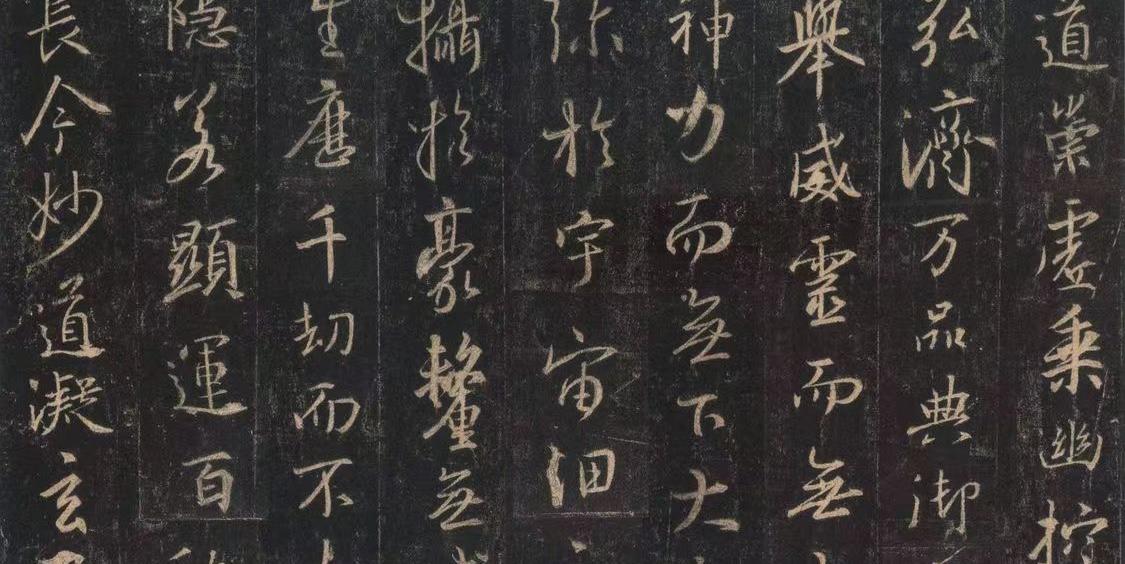 道崇虛乘幽控
弘濟万品典御
舉威靈而無
神力而無下大
弥於宇宙細
攝於豪氂無
生歷千劫而不
隐若顯運百
長今妙道凝玄